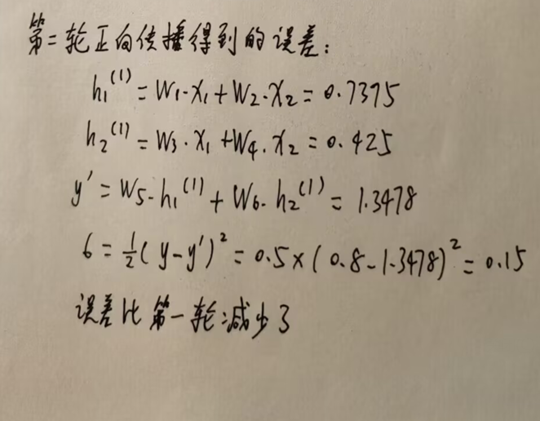 第二轮正向传播得到的误差:
h₁⁽¹⁾ = W₁·x₁ + W₂·x₂ = 0.7375
h₂⁽¹⁾ = W₃·x₁ + W₄·x₂ = 0.425
y' = W₅·h₁⁽¹⁾ + W₆·h₂⁽¹⁾ = 1.3478
6 = ½(y-y')² = 0.5×(0.8-1.3478)² = 0.15
误差比第一轮减少了